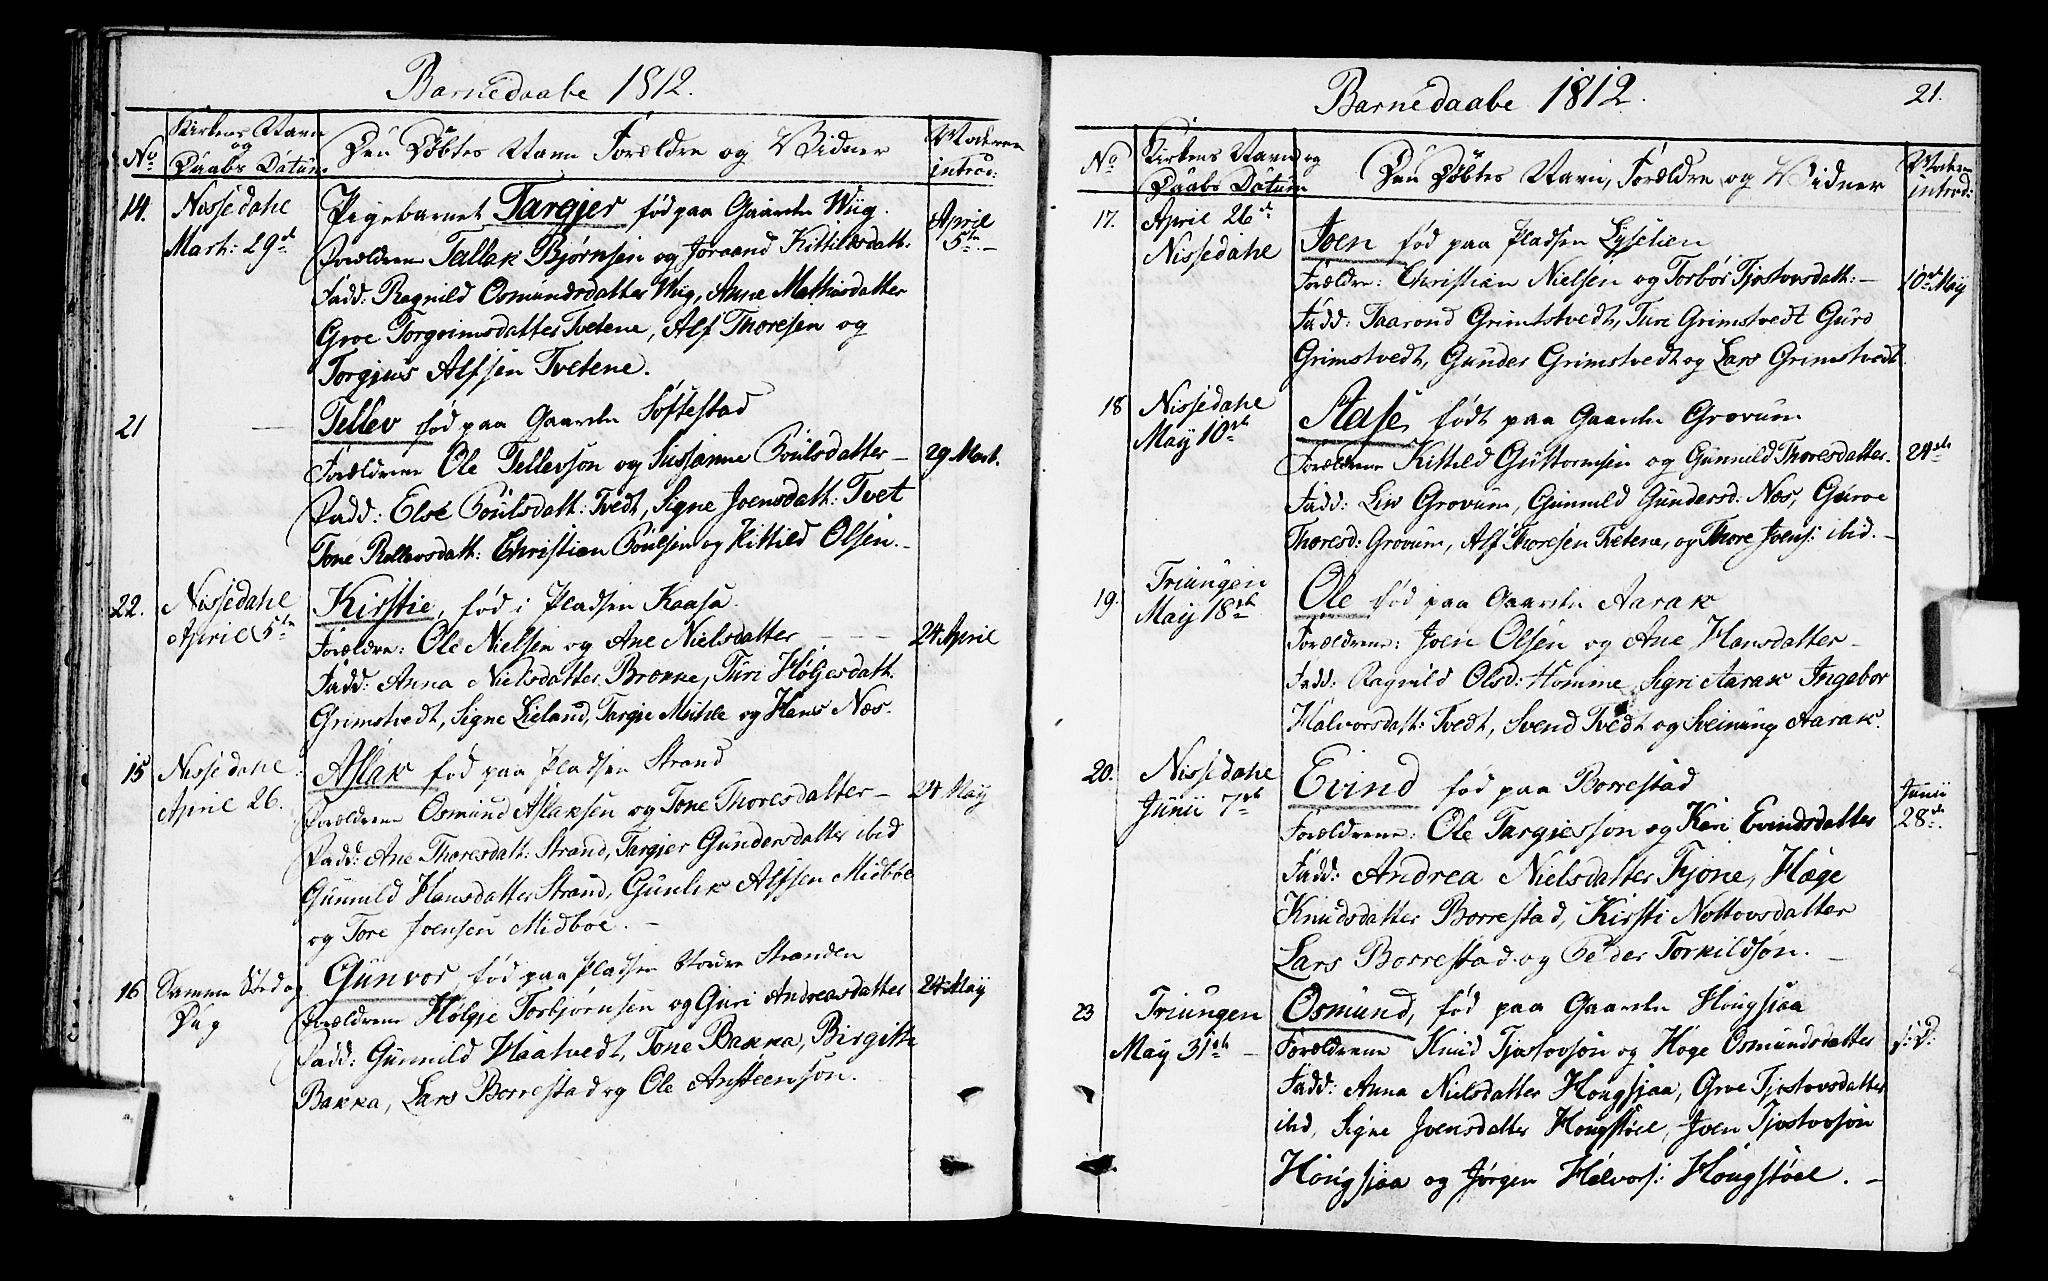 Barnedaabe 1812.
No
Kirkens Navn
og
Daabs Datum
Den Döbtes Navn Forældre og Vidner
Moderen
introd:
14.
Nissedahl
Mart: 29de
Pigebarnet Targjer fød paa Gaarden Wiig.
Forældrene Tellak Bjørnsen og Joraand Kittilsdatt:
April
5te
Fadd: Ragnild Osmundsdatter Wiig, Anne Mathiasdatter
Groe Torgrimsdatter Tvetene, Alf Thoresen og
Torgjus Alfsen Tvetene.
21
Tellev fød paa Gaarden Söftestad
Forældrene Ole Tellevsön og Sussanne Poulsdatter
29 Mart.
Fadd: Else Poulsdatt: Tvedt, Signe Joensdatt: Tvet
Tone Rollevsdatt: Christian Poulsen og Kittild Olsen.
22.
Nissedahl
April 5te
Kirstie, fød i Pladsen Kaasa.
Forældre: Ole Nielsen og Ane Nielsdatter
24 April
Fadd: Anna Nielsdatter Brenne, Turi Høljesdatt.
Grimstvedt, Signe Lieland, Targie Mühle og Hans Næs.
15
Nissedahl
April 26.
Aslak fød paa Pladsen Strand
Forældrene Osmund Aslaksen og Tone Thoresdatter
24 Maij
Fadd: Ane Thoresdatt: Strand, Targjer Gundersdatter ibid
Gunnild Hansdatter Strand, Gunlek Alfsen Midböe
og Tore Joensen Midböe.
16
Samme Sted og
Dag
Gunvor, fød paa Pladsen Nordre Stranden
Forældrene Hølgje Torbjörnsen og Guri Andreasdatter
24 Maij
Fadd: Gunnild Haatvedt, Tone Bakka, Birgitte
Bakka, Lars Borrestad og Ole Ansteensön.
Barnedaabe 1812.
21.
No
Kirkens Navn og
Daabs Datum
Den Döbtes Navn, Forældre og Vidner
Moderen
introd:
17.
April 26de
Nissedahl
Joen fød paa Pladsen Lyselien
Forældre: Christian Nielsen og Torbör Tjostovsdatt:
10de Maij
Fadd: Taarond Grimtstvedt, Turi Grimstvedt Guro
Grimstvedt, Gunder Grimstvedt og Lars Grimstvedt
18
Nissedahl
Maij 10de
Aase, født paa Gaarden Grovum
Forældrene Kittild Guttormsen og Gunnild Thoresdatter.
24de
Fadd: Liv Grovum, Gunnild Gundersd: Næs, Guroe
Thoresd: Grovum, Alf Thoresen Tvetene, og Thore Joens: ibid.
19.
Triungen
Maij 18de
Ole fød paa Gaarden Aarak
Forældrene: Joen Olsen og Ane Hansdatter
Fadd: Ragnild Olsd: Homme, Sigri Aarak Ingebor
Halvorsdatt: Tvedt, Svend Tvedt og Sveinung Aarak.
20.
Nissedahl
Junii 7de
Evind fød paa Borrestad
Forældrene: Ole Targiesson og Kari Evindsdatter
Junii
28de
Fadd: Andrea Nielsdatter Fjone, Hæge
Knudsdatter Borrestad, Kirsti Nottovsdatter
Lars Borrestad og Peder Torkildsön.
23
Triungen
Maij 31te
Osmund, fød paa Gaarden Hougsjaa
Forældrene Knud Tjostovsön og Hoge Osmundsdatter
s: D:
Fadd: Anna Nielsdatter Hougsjaa, Groe Tjostovsdatter
ibid, Signe Joensdatter Hougstöel, Joen Tjostovsön
Hougsjaa og Jörgen Halvors: Hougstöel.